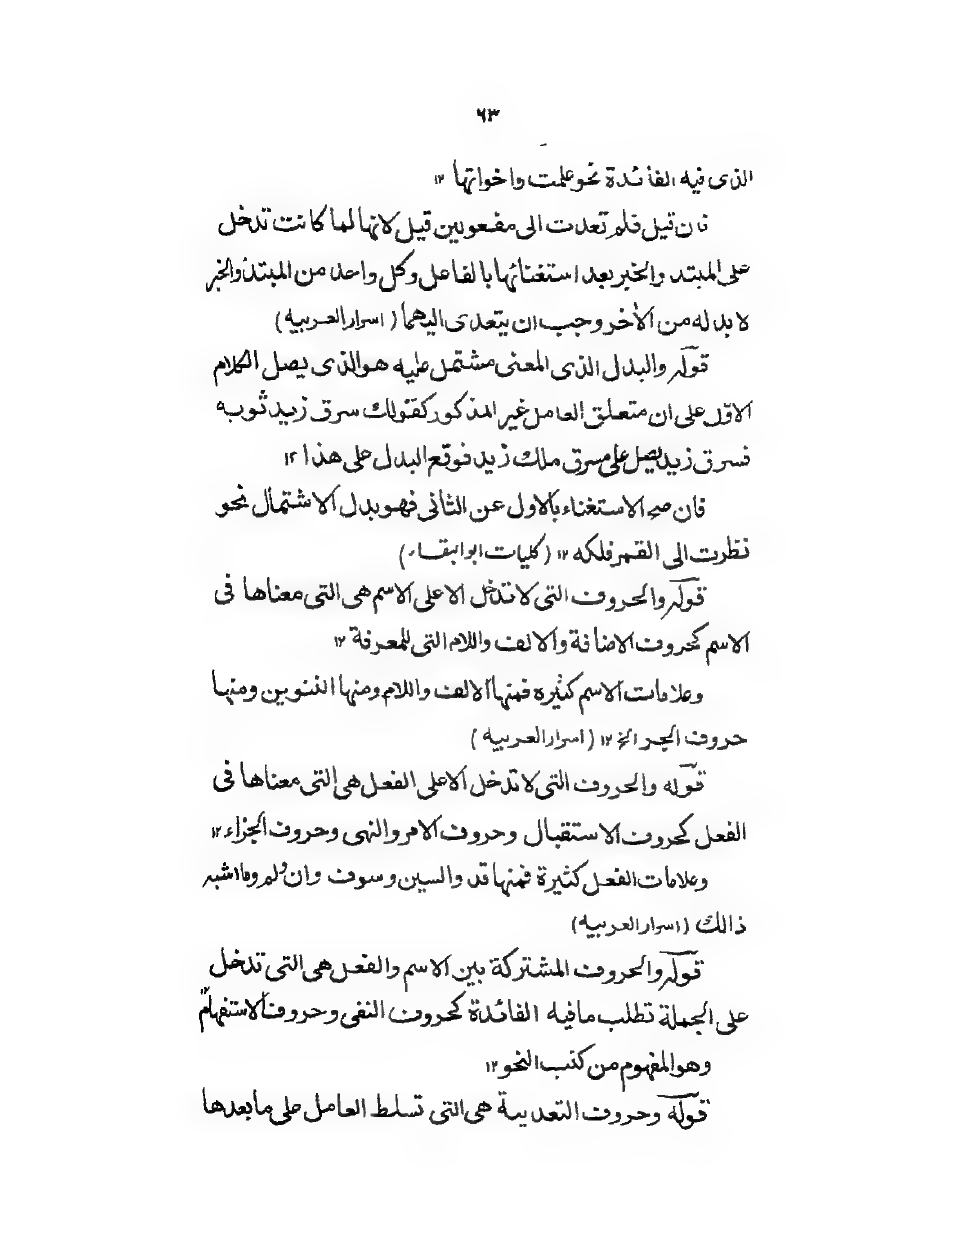 ٦٣
الذى فيه الفائدة نحو علمت واخواتها ١٢
فان قيل فلم تعدت الى مفعولين قيل لانها لما كانت تدخل
على المبتدء والخبر بعد استغنائها بالفاعل وكل واحد من المبتدأ والخبر
لا بد له من الأخر وجب ان يتعدى اليهما (اسرار العربيه)
قوله والبدل الذى المعنى مشتمل عليه هو الذى يصل الكلام
الاوّل على ان متعلق العامل غير المذكور كقولك سرق زيد ثوبه
فسرق زيد يصل على سرق ملك زيد فوقع البدل على هذا ١٢
فان صح الاستغناء بالاول عن الثانى فهو بدل الاشتمال نحو
نظرت الى القمر فلكه ١٢ (كليات ابو البقاء)
قوله والحروف التى لا تدخل الا على الاسم هى التى معناها فى
الاسم كحروف الاضافة والالف واللام التى للمعرفة ١٢
وعلامات الاسم كثيره فمنها الالف واللام ومنها التنوين ومنها
حروف الجر الخ ١٢ (اسرار العربيه)
قوله والحروف التى لا تدخل الا على الفعل هى التى معناها فى
الفعل كحروف الاستقبال وحروف الامر والنهى وحروف الجزاء ١٢
وعلامات الفعل كثيرة فمنها قد والسين وسوف وان ولم وما اشبه
ذالك (اسرار العربيه)
قوله والحروف المشتركة بين الاسم والفعل هى التى تدخل
على الجملة تطلب ما فيه الفائدة كحروف النفى وحروف الاستفهام ١٢
وهو المفهوم من كتب النحو ١٢
قوله وحروف التعدية هى التى تسلط العامل على ما بعدها